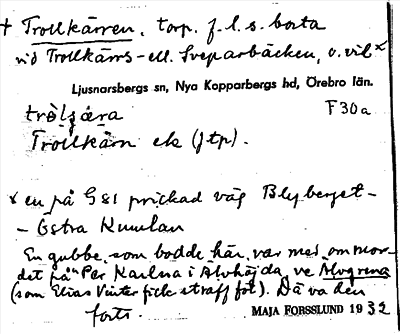 + Trollkärren, torp, f.l.s. borta
vid Trollkärrs- ell. Sveparbäcken, o. vil x
Ljusnarsbergs sn, Nya Kopparbergs hd, Örebro län.
F30a
Trollkärn ek (jtp).
x en på G81 prickad väg Blyberget-
- Östra Kumlan
En gubbe, som bodde här, var med om mor-
det på "Per Karlsa i Alvhöjda, ve Älvgrena
(som Elias Vinter fick straff för). Då va den
forts.
MAJA FORSSLUND 1932